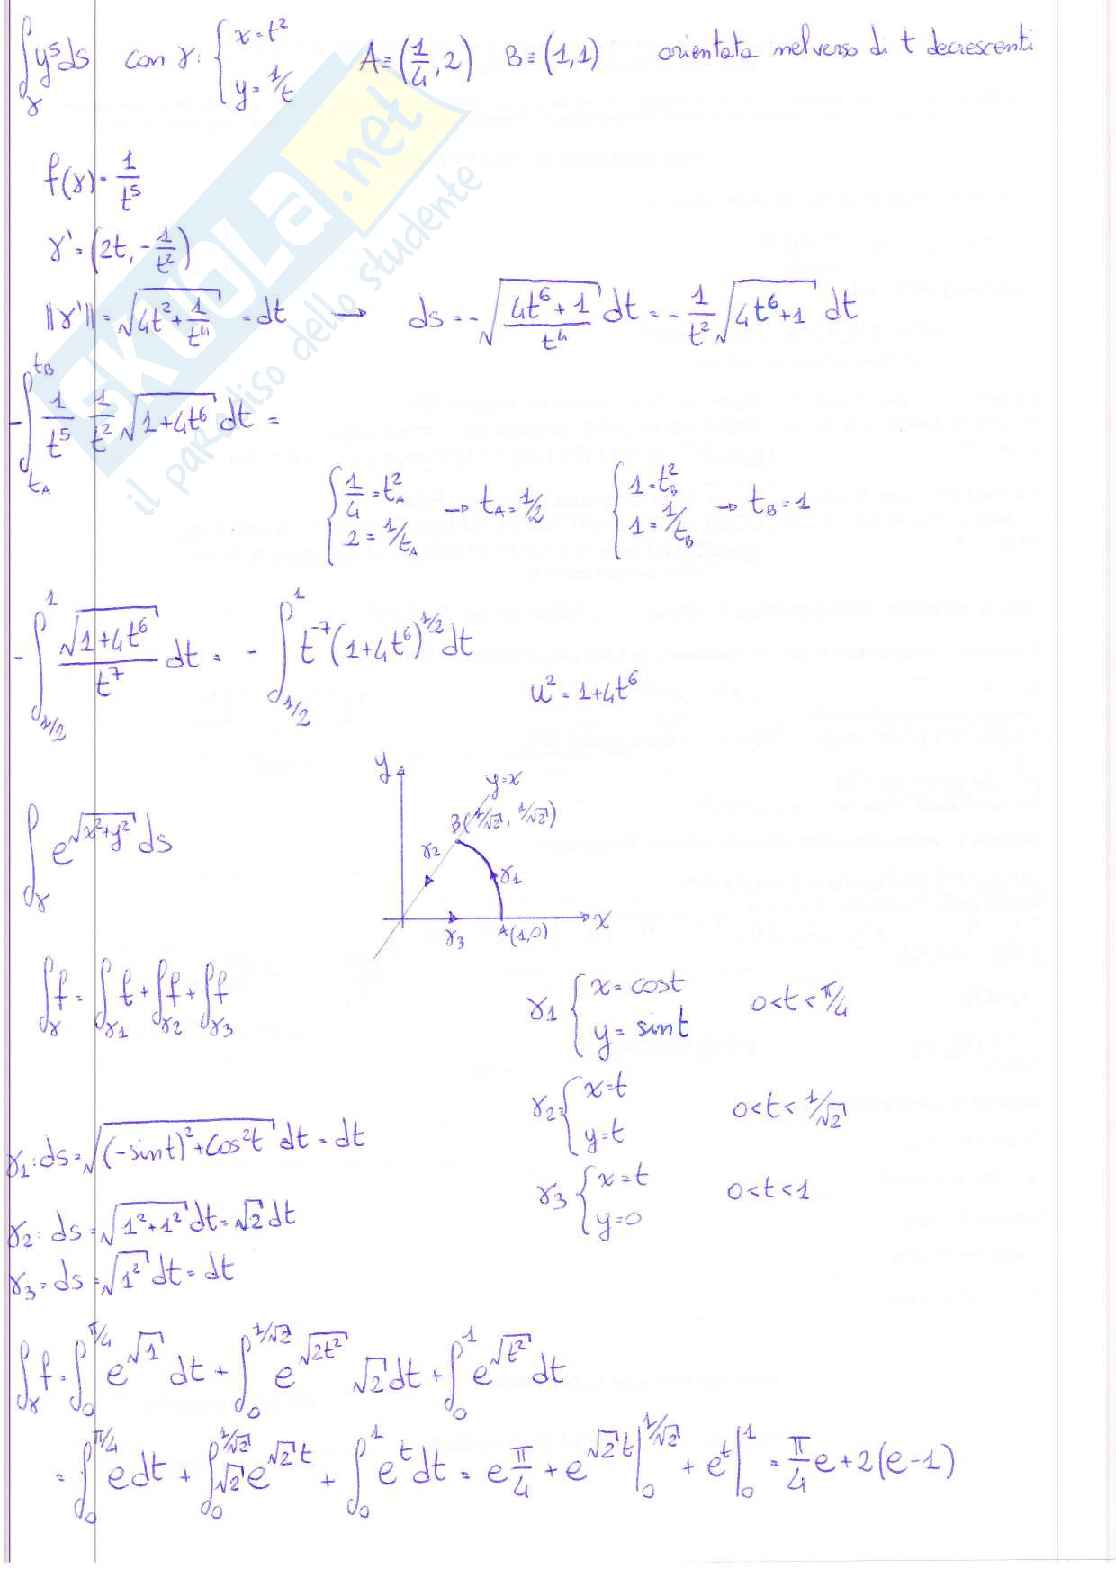 ∫_γ y⁵ds con γ: { x=t² y=1/t A≡(1/4, 2) B≡(1,1) orientata nel verso di t decrescenti
f(γ)=1/t⁵
γ'=(2t, -1/t²)
||γ'||=√(4t²+1/t⁴) = dt → ds=-√((4t⁶+1)/t⁴) dt = -1/t² √(4t⁶+1) dt
-∫_{t_A}^{t_B} 1/t⁵ 1/t² √(1+4t⁶) dt =
{ 1/4=t_A² 2=1/t_A → t_A=1/2 { 1=t_B² 1=1/t_B → t_B=1
-∫_{1/2}^{1} √(1+4t⁶)/t⁷ dt = -∫_{1/2}^{1} t⁻⁷(1+4t⁶)^{1/2} dt
u²=1+4t⁶
∫_γ e^{√(x²+y²)} ds
y
y=x
B(1/√2, 1/√2)
γ2
γ1
γ3
A(1,0)
x
∫_γ f = ∫_γ1 f + ∫_γ2 f + ∫_γ3 f
γ1 { x=cost y=sint 0<t<π/4
γ2 { x=t y=t 0<t<1/√2
γ3 { x=t y=0 0<t<1
γ1: ds=√((-sint)²+cos²t) dt=dt
γ2: ds=√(1²+1²) dt=√2 dt
γ3=ds=√(1²) dt=dt
∫_γ f=∫_0^{π/4} e^{√1} dt + ∫_0^{1/√2} e^{√(2t²)} √2 dt + ∫_0^1 e^{√(t²)} dt
=∫_0^{π/4} e dt + ∫_0^{1/√2} √2 e^{√2 t} + ∫_0^1 e^t dt = e π/4 + e^{√2 t}|_0^{1/√2} + e^t|_0^1 = π/4 e+2(e-1)
SKUOLA.net
il paradiso dello studente